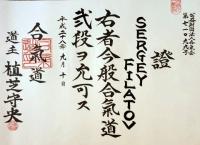 證
SERGEY
FILATOV
右者今般合氣道
弐段ヲ允可ス
平成二十八年 九月 十日
合氣道
道主 植芝守央